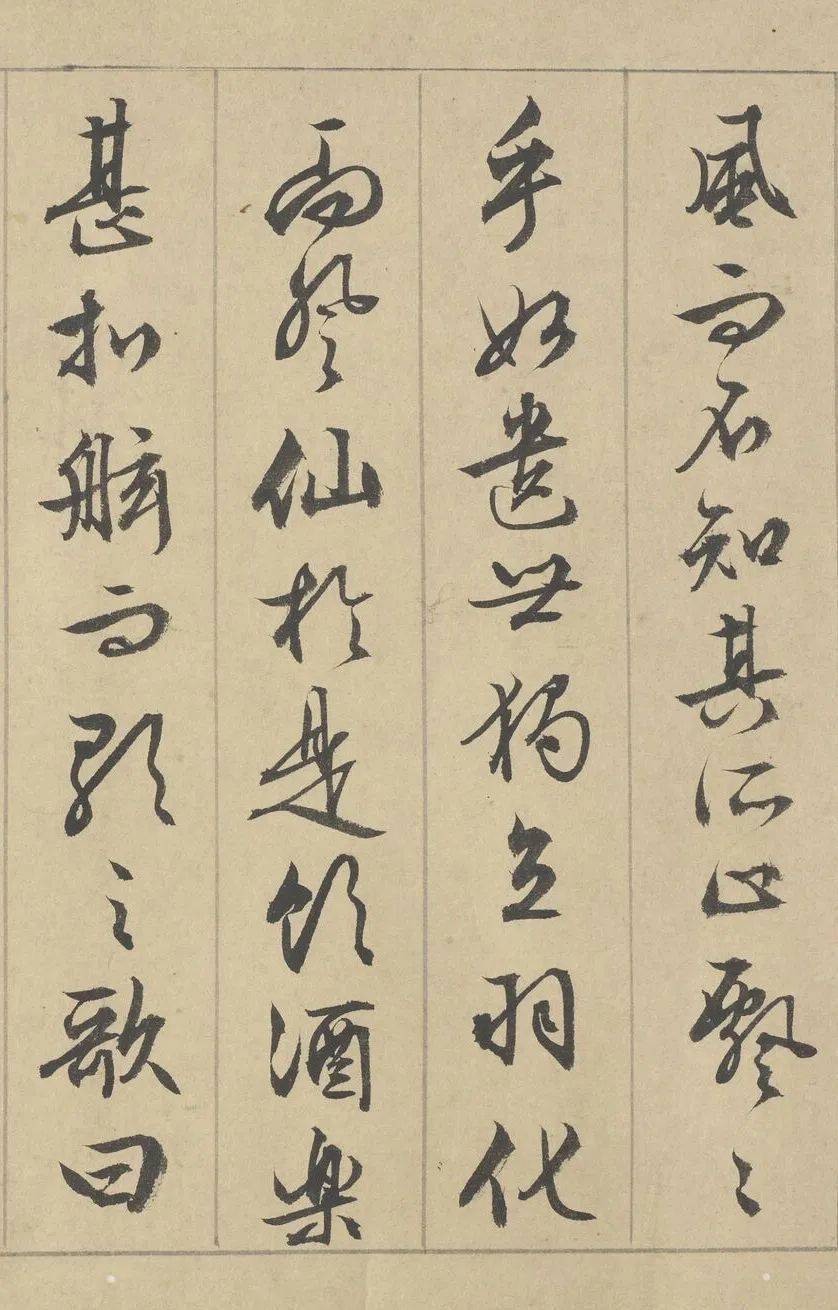 風而不知其所止飄〻
乎如遺世獨立羽化
而登仙於是飲酒樂
甚扣舷而歌之歌曰